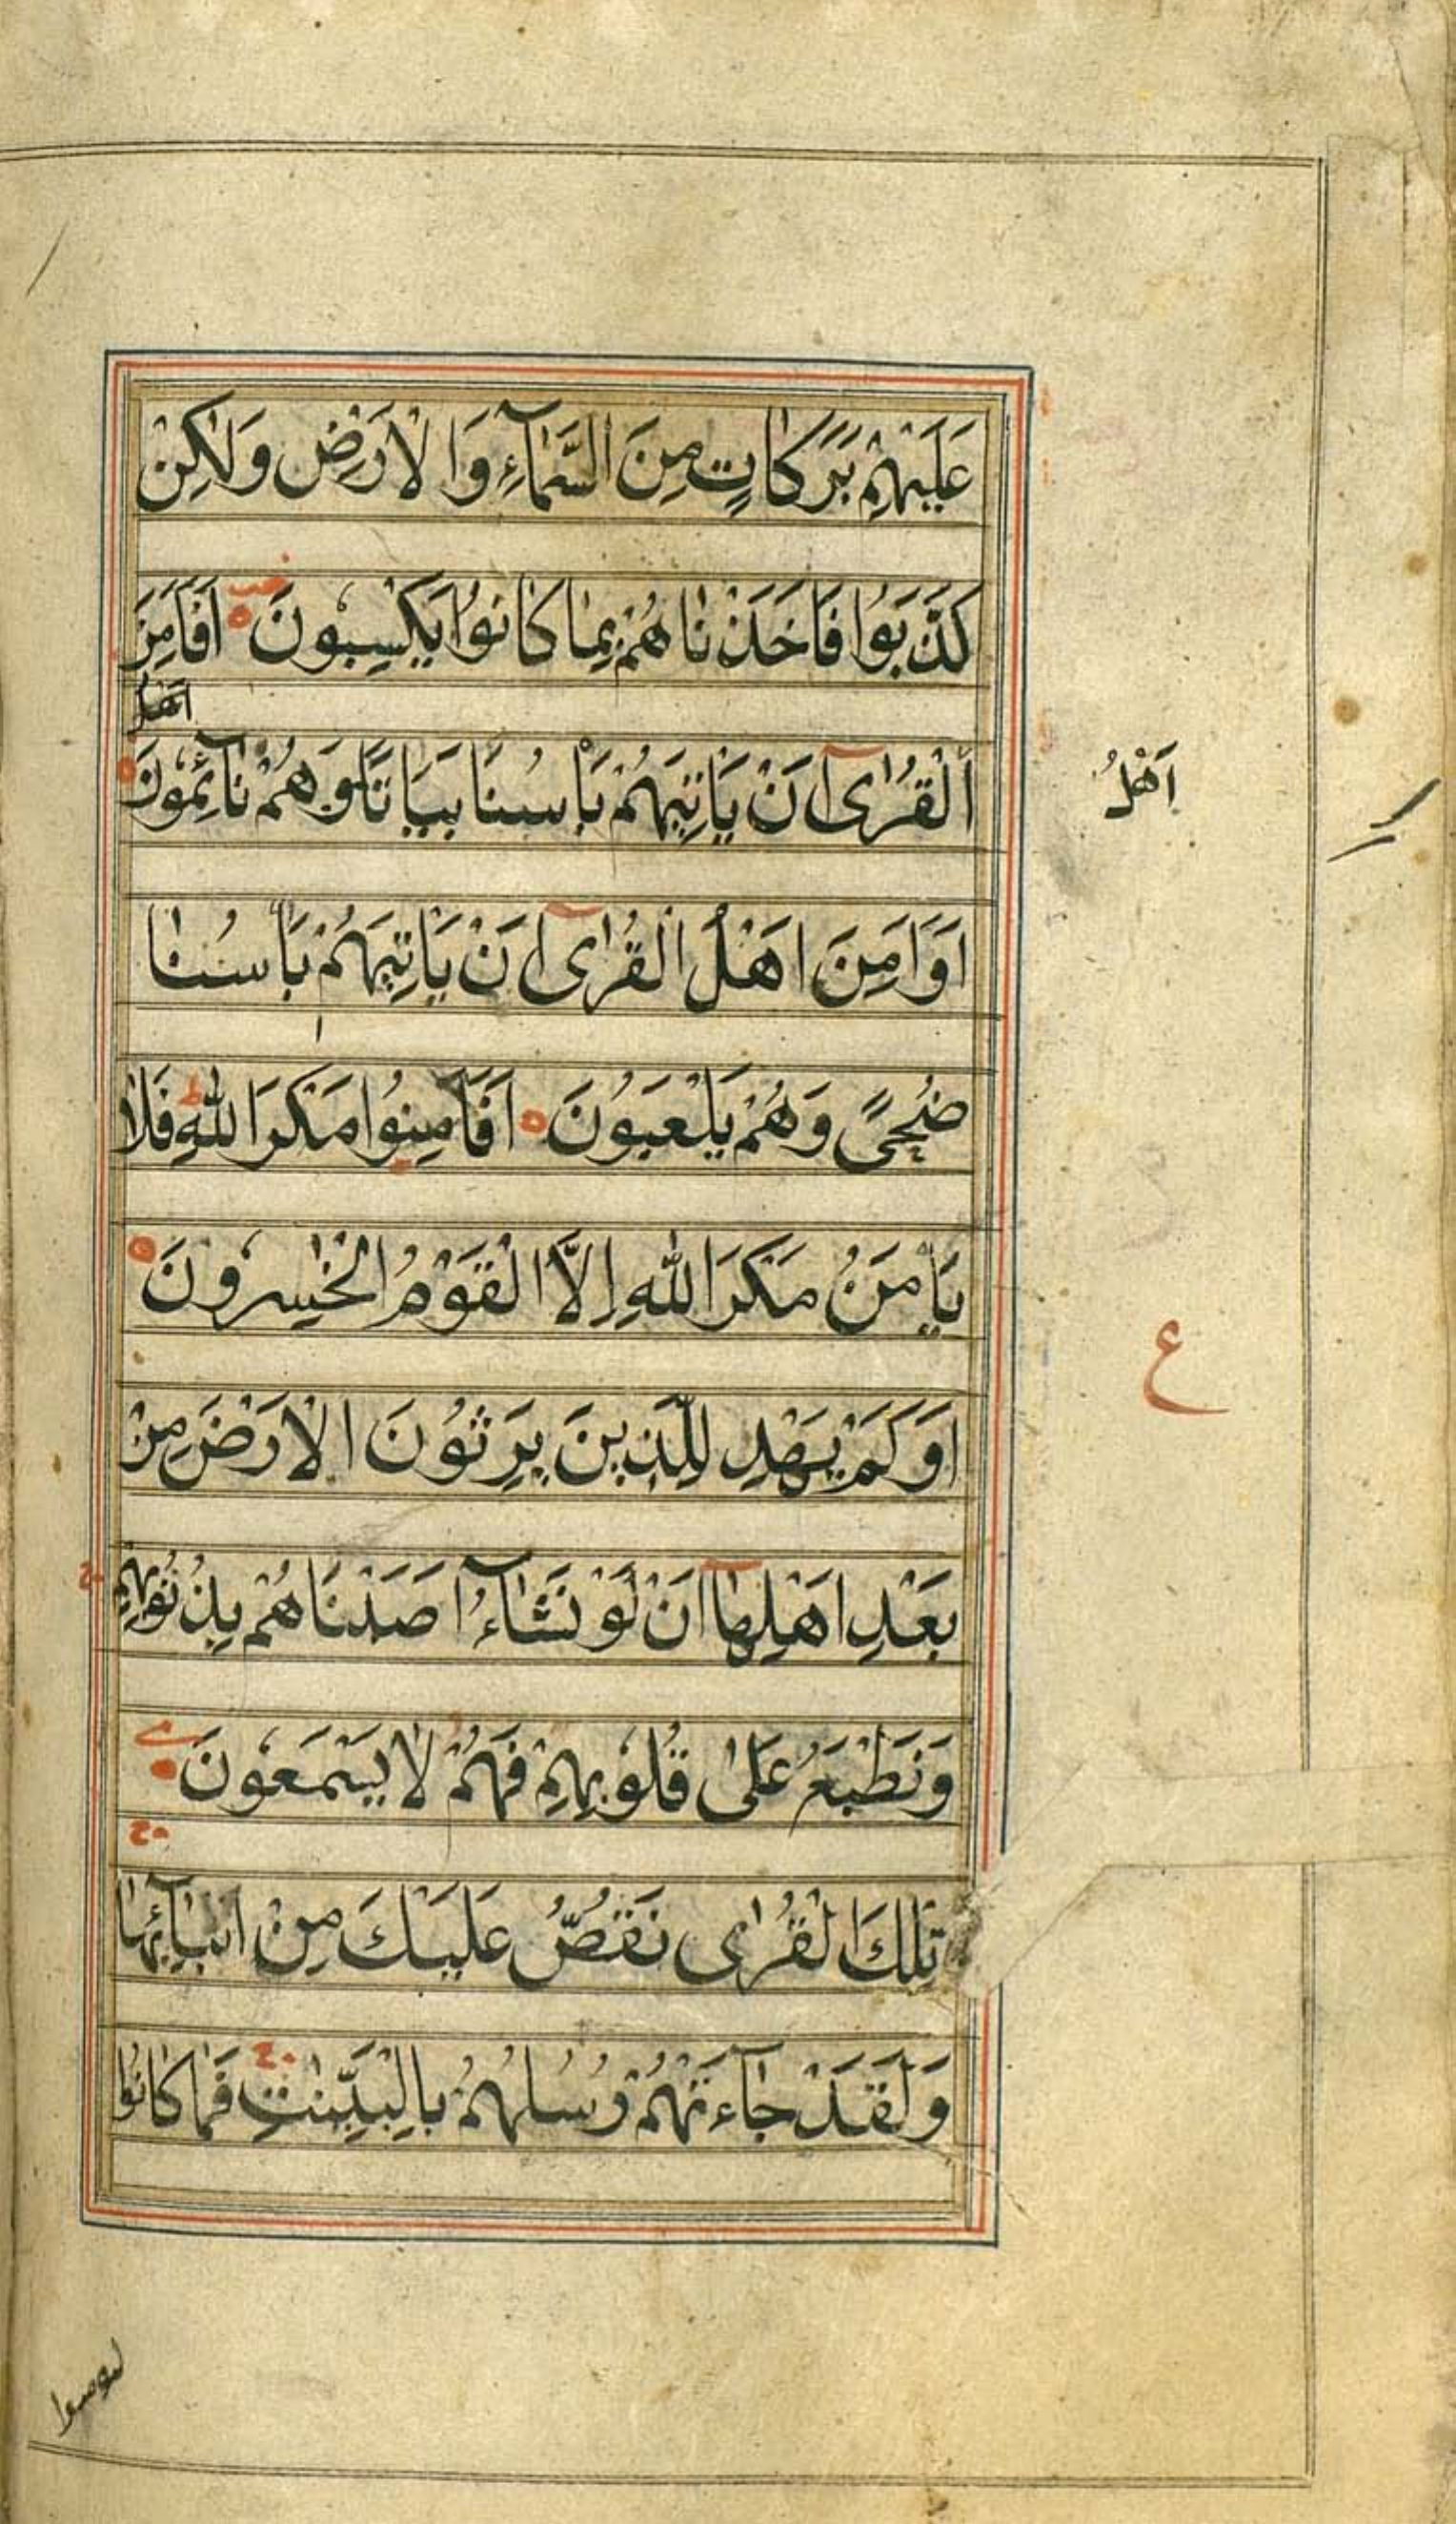 عَلَيْهِمْ بَرَكَاتٍ مِنَ السَّمَآءِ وَالْاَرْضِ وَلٰكِنْ
كَذَّبُوْا فَاَخَذْنَاهُمْ بِمَا كَانُوْا يَكْسِبُوْنَ اَفَاَمِنَ
اَهْلُ
الْقُرٰىٓ اَنْ يَاْتِيَهُمْ بَاْسُنَا بَيَاتًا وَهُمْ نَآئِمُوْنَ
اَهْلُ
اَوَاَمِنَ اَهْلُ الْقُرٰىٓ اَنْ يَاْتِيَهُمْ بَاْسُنَا
ضُحًى وَهُمْ يَلْعَبُوْنَ اَفَاَمِنُوْا مَكْرَ اللّٰهِ ط فَلَا
يَاْمَنُ مَكْرَ اللّٰهِ اِلَّا الْقَوْمُ الْخٰسِرُوْنَ
ع
اَوَلَمْ يَهْدِ لِلَّذِيْنَ يَرِثُوْنَ الْاَرْضَ مِنْ
بَعْدِ اَهْلِهَآ اَنْ لَوْ نَشَآءُ اَصَبْنَاهُمْ بِذُنُوْبِهِمْ ج
وَنَطْبَعُ عَلٰى قُلُوْبِهِمْ فَهُمْ لَا يَسْمَعُوْنَ
تِلْكَ الْقُرٰى نَقُصُّ عَلَيْكَ مِنْ اَنْبَآئِهَا ج
وَلَقَدْ جَآءَتْهُمْ رُسُلُهُمْ بِالْبَيِّنٰتِ ج فَمَا كَانُوْا
لیومنوا